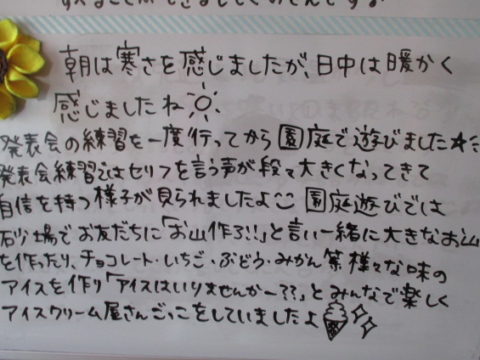 朝は寒さを感じましたが、日中は暖かく
感じましたね
発表会の練習を一度行ってから園庭で遊びました★
発表会練習ではセリフを言う声が段々大きくなってきて
自信を持つ様子が見られましたよ 園庭遊びでは
砂場でお友だちに「お山作ろ!!」と言い一緒に大きなお山
を作ったり、チョコレート・いちご・ぶどう・みかん等様々な味の
アイスを作り「アイスはいりませんかー??」とみんなで楽しく
アイスクリーム屋さんごっこをしていましたよ